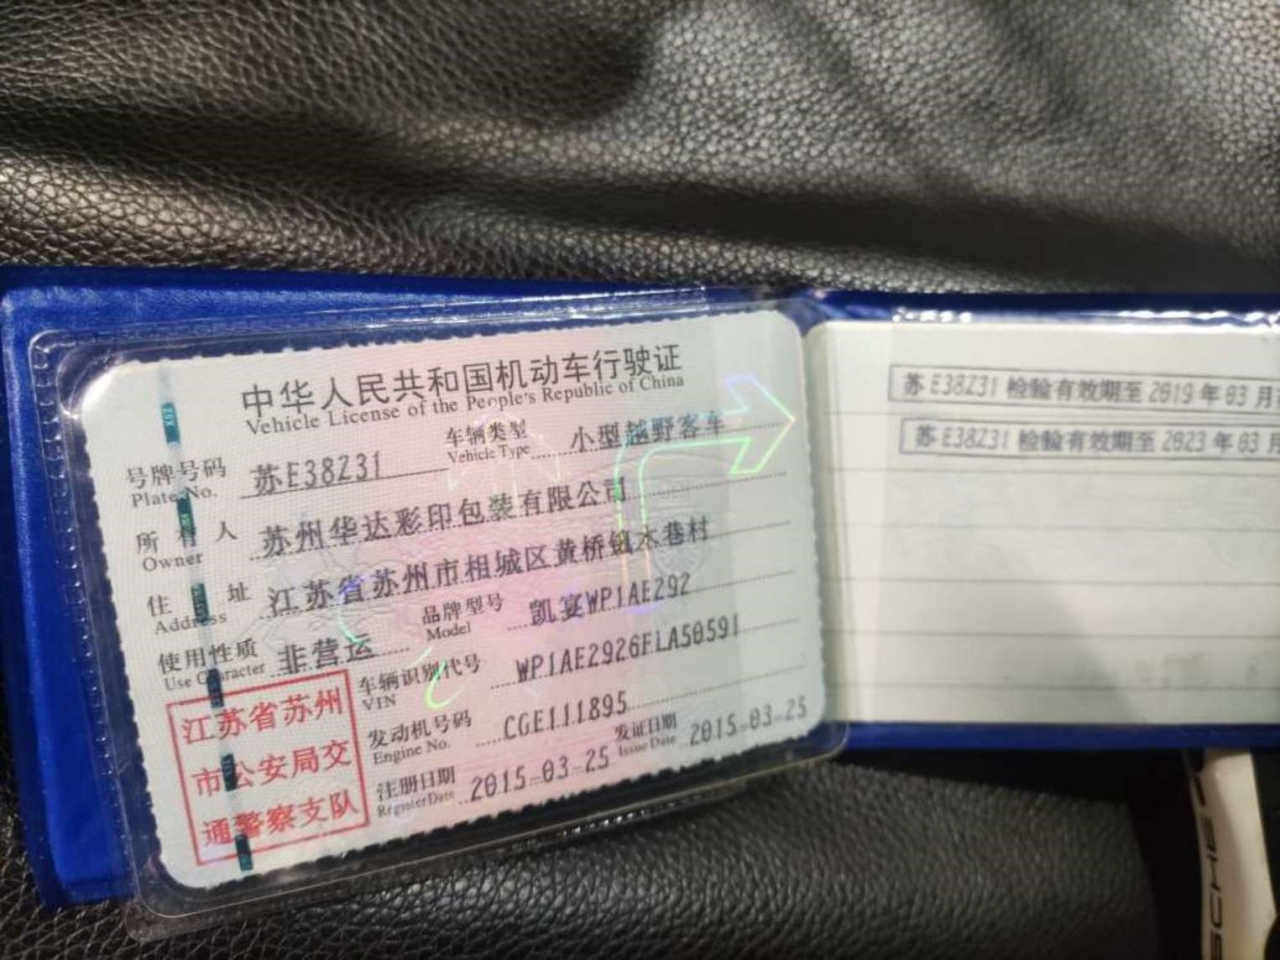 中华人民共和国机动车行驶证
Vehicle License of the People's Republic of China
号牌号码 苏E38Z31 车辆类型 小型越野客车
Plate No. Vehicle Type
所有人 苏州华达彩印包装有限公司
Owner
住址 江苏省苏州市相城区黄桥镇木巷村
Address
使用性质 非营运 品牌型号 凯宴WP1AE292
Use Character Model
车辆识别代号 WP1AE2926FLA50591
VIN
发动机号码 CGE111895
Engine No.
注册日期 2015-03-25 发证日期 2015-03-25
Register Date Issue Date
江苏省苏州
市公安局交
通警察支队
苏E38Z31 检验有效期至 2019 年 03 月
苏E38Z31 检验有效期至 2023 年 03 月
SCHE